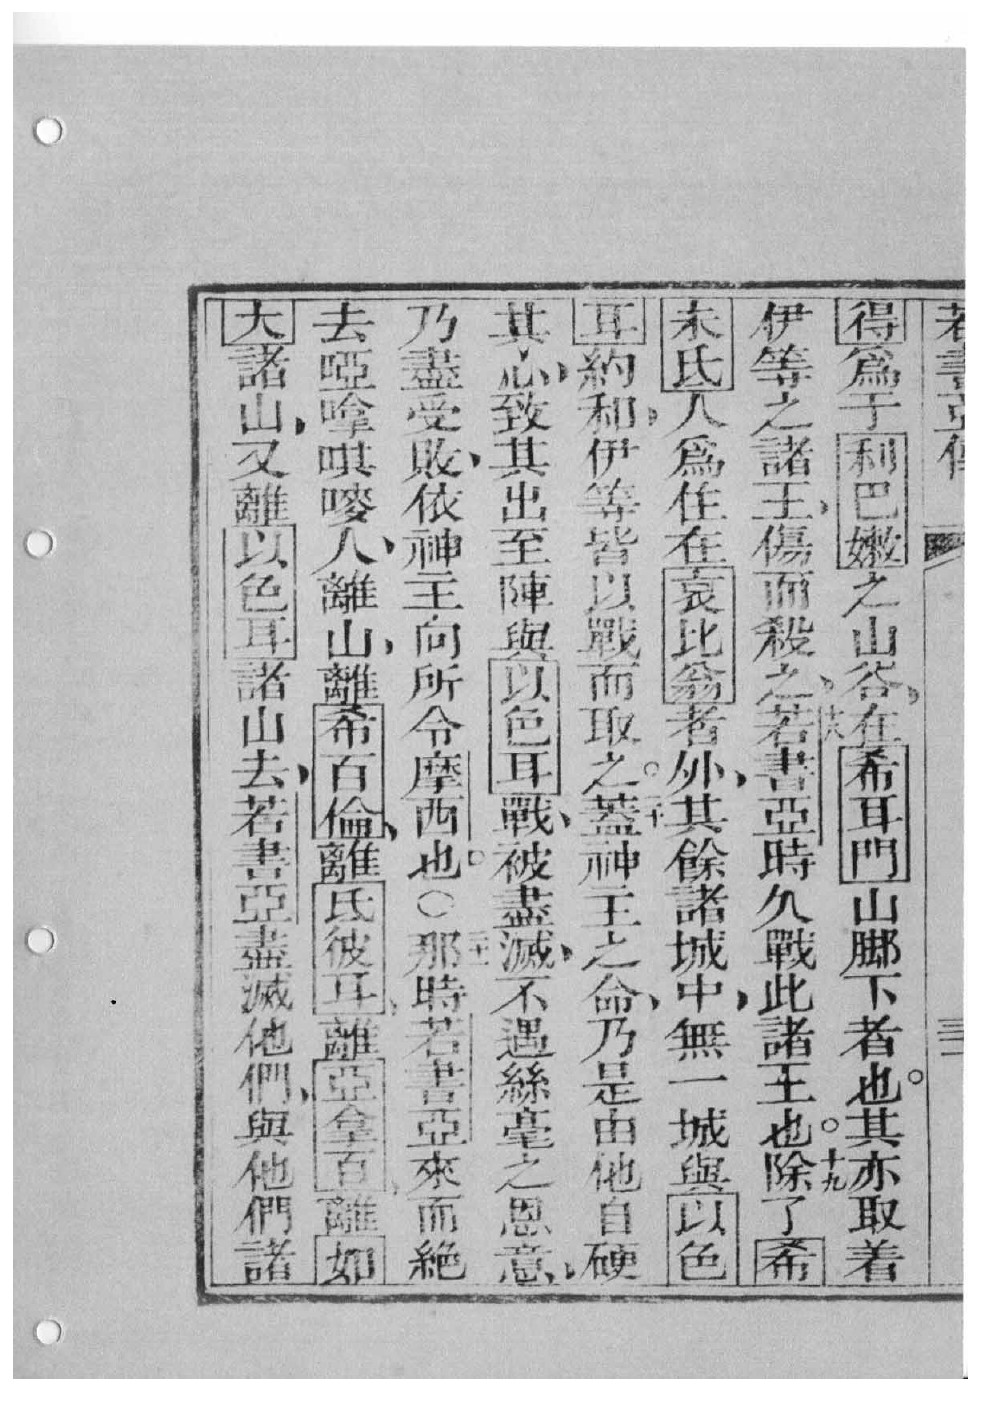 若書亞傳 三二
得爲于利巴嫩之山谷、在希耳門山脚下者也。其亦取着
伊等之諸王、傷而殺之、十八若書亞時久戰此諸王也。十九除了希
未氏人爲住在哀比翁者外、其餘諸城中、無一城與以色
耳約和、伊等皆以戰而取之。二十蓋神主之命、乃是由他自硬
其心、致其出至陣與以色耳戰、被盡滅、不遇絲毫之恩意、
乃盡受敗、依神主向所令摩西也。○二一那時若書亞來而絕
去啞嗱唭嘜人、離山、離希百倫、離氏彼耳、離亞拿百、離如
大諸山、又離以色耳諸山去、若書亞盡滅他們、與他們諸